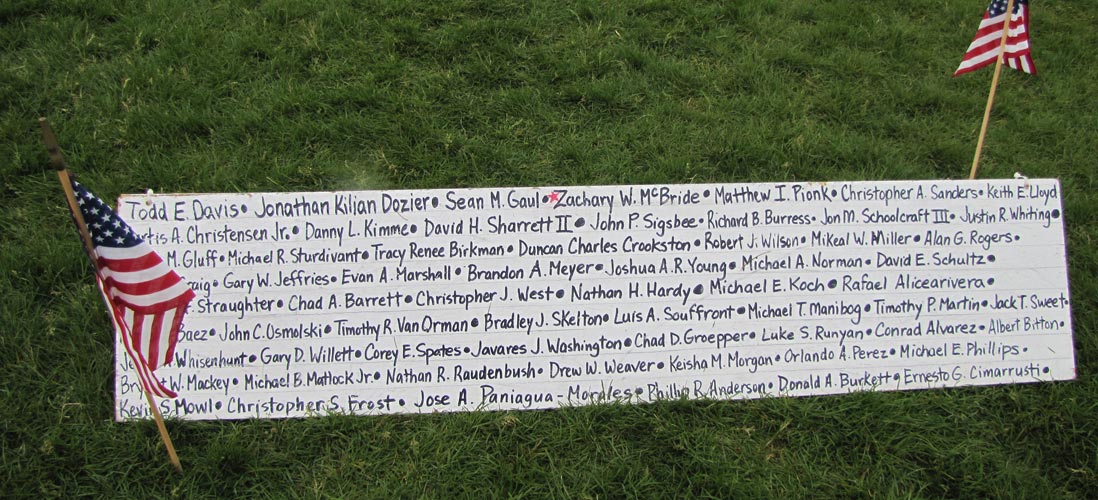 Todd E. Davis • Jonathan Kilian Dozier • Sean M. Gaul • Zachary W. McBride • Matthew I. Pionk • Christopher A. Sanders • Keith E. Lloyd
A. Christensen Jr. • Danny L. Kimme • David H. Sharrett II • John P. Sigsbee • Richard B. Burress • Jon M. Schoolcraft III • Justin R. Whiting •
M. Gluff • Michael R. Sturdivant • Tracy Renee Birkman • Duncan Charles Crookston • Robert J. Wilson • Mikeal W. Miller • Alan G. Rogers •
Gary W. Jeffries • Evan A. Marshall • Brandon A. Meyer • Joshua A.R. Young • Michael A. Norman • David E. Schultz •
Straughter • Chad A. Barrett • Christopher J. West • Nathan H. Hardy • Michael E. Koch • Rafael Alicearivera •
Baez • John C. Osmolski • Timothy R. Van Orman • Bradley J. Skelton • Luis A. Souffront • Michael T. Manibog • Timothy P. Martin • Jack T. Sweet •
Whisenhunt • Gary D. Willett • Corey E. Spates • Javares J. Washington • Chad D. Groepper • Luke S. Runyan • Conrad Alvarez • Albert Bitton •
W. Mackey • Michael B. Matlock Jr. • Nathan R. Raudenbush • Drew W. Weaver • Keisha M. Morgan • Orlando A. Perez • Michael E. Phillips •
Kevin S. Mowl • Christopher S. Frost • Jose A. Paniagua - Morales • Phillip R. Anderson • Donald A. Burkett • Ernesto G. Cimarrusti •